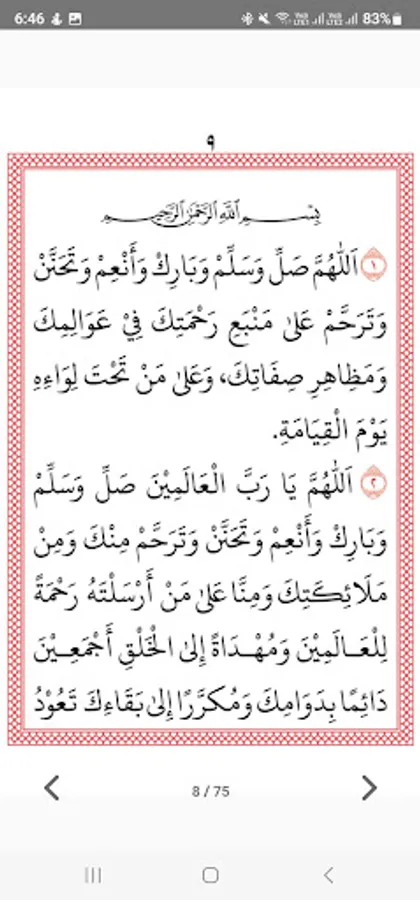 6:46
83%
٩
بِسْــــمِ اللّٰهِ الرَّحْمٰنِ الرَّحِيْــــمِ
١ اَللّٰهُمَّ صَلِّ وَسَلِّمْ وَبَارِكْ وَأَنْعِمْ وَتَحَنَّنْ
وَتَرَحَّمْ عَلىٰ مَنْبَعِ رَحْمَتِكَ فِيْ عَوَالِمِكَ
وَمَظَاهِرِ صِفَاتِكَ، وَعَلىٰ مَنْ تَحْتَ لِوَاءِهٖ
يَوْمَ الْقِيَامَةِ.
٢ اَللّٰهُمَّ يَا رَبَّ الْعَالَمِيْنَ صَلِّ وَسَلِّمْ
وَبَارِكْ وَأَنْعِمْ وَتَحَنَّنْ وَتَرَحَّمْ مِنْكَ وَمِنْ
مَلَائِكَتِكَ وَمِنَّا عَلىٰ مَنْ أَرْسَلْتَهُ رَحْمَةً
لِلْعَـالَمِيْنَ وَمُهْـدَاةً إِلىٰ الْخَلْقِ أَجْمَعِـيْنَ
دَائِمًا بِدَوَامِكَ وَمُكَرَّرًا إِلىٰ بَقَاءِكَ تَعُوْدُ
8 / 75